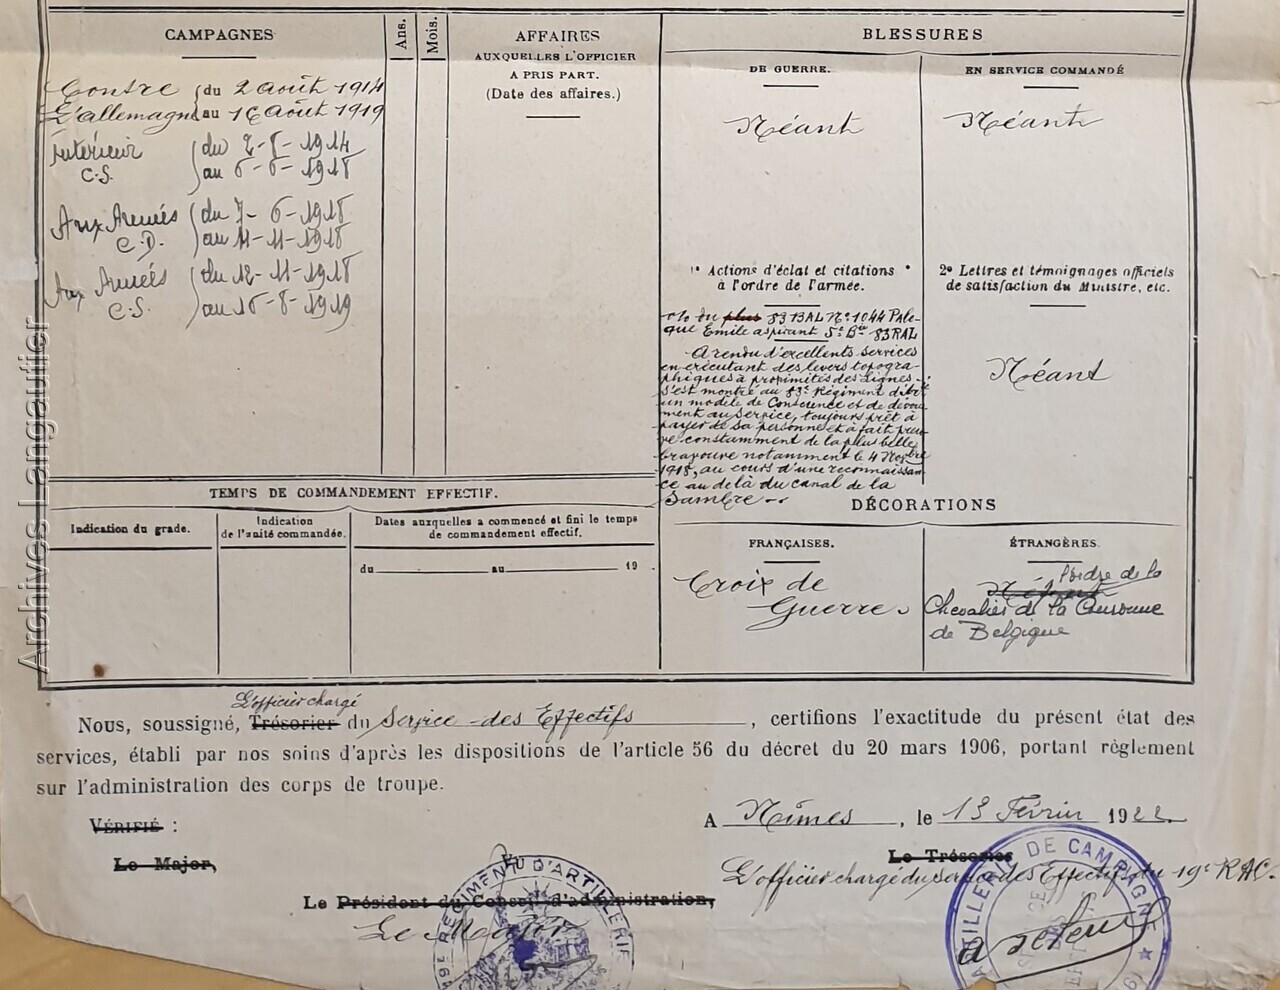 CAMPAGNES
Ans.
Mois.
AFFAIRES
AUXQUELLES L'OFFICIER
A PRIS PART.
(Date des affaires.)
BLESSURES
DE GUERRE.
EN SERVICE COMMANDÉ
Contre du 2 août 1914
L'allemagne au 16 Août 1919
Intérieur du 2-8-1914
C.S. au 6-6-1918
Aux Armées du 7-6-1918
C.D. au 11-11-1918
Aux Armées du 12-11-1918
C.S. au 16-8-1919
Néant
Néant
1° Actions d'éclat et citations
à l'ordre de l'armée.
2° Lettres et témoignages officiels
de satisfaction du Ministre, etc.
o/o du plus 83 BAL N° 1044 Pale-
que Emile aspirant 5e Bie 83 RAL
A rendu d'excellents services
en exécutant des levers topogra-
phiques à proximités des Lignes -
s'est montré au 83e Régiment
un modèle de Conscience et de dévou-
ment au service, toujours prêt à
payer de sa personne et à fait preu-
ve constamment de la plus belle
bravoure notamment le 4 Novbre
1918, au cours d'une reconnaissan-
ce au delà du canal de la
Sambre
Néant
TEMPS DE COMMANDEMENT EFFECTIF.
Indication du grade.
Indication
de l'unité commandée.
Dates auxquelles a commencé et fini le temps
de commandement effectif.
du au 19
DÉCORATIONS
FRANÇAISES.
ÉTRANGÈRES.
Croix de
Guerre
Néant l'ordre de la
Chevalier de la Couronne
de Belgique
L'officier chargé
Nous, soussigné, Trésorier du Service des Effectifs, certifions l'exactitude du présent état des
services, établi par nos soins d'après les dispositions de l'article 56 du décret du 20 mars 1906, portant règlement
sur l'administration des corps de troupe.
VÉRIFIÉ :
A Nîmes, le 13 Février 1922
Le Major,
Le Trésorier
L'officier chargé du service des Effectifs du 19e RAC.
Le Président du Conseil d'administration,
Le Major
RÉGIMENT D'ARTILLERIE
ARTILLERIE DE CAMPAGNE
Archives Langautier